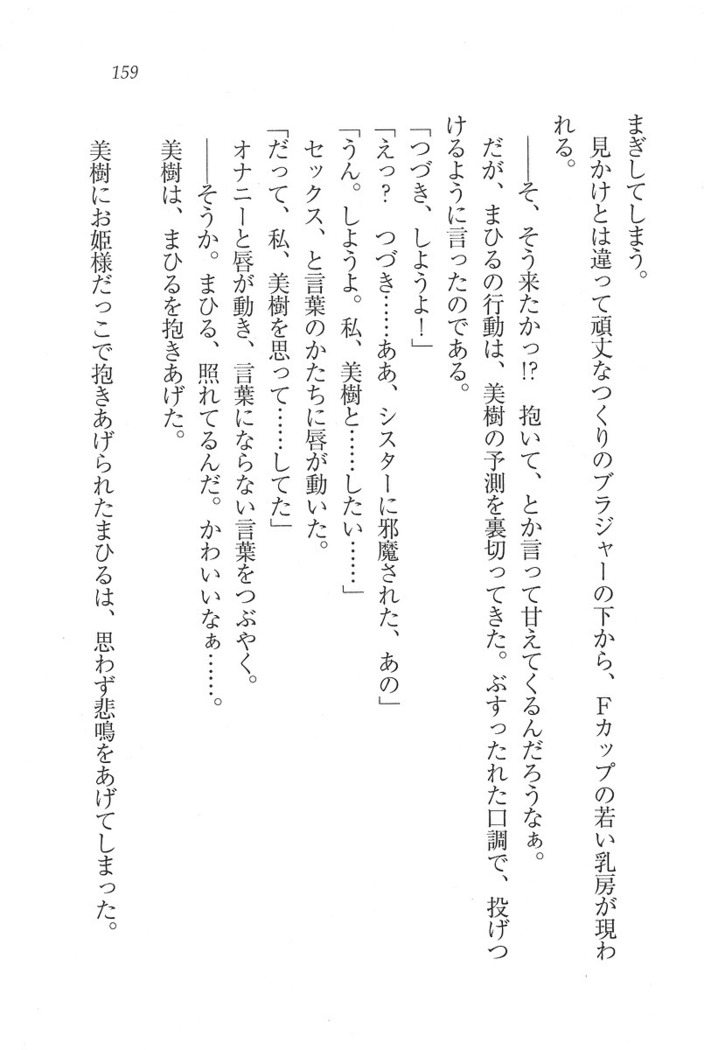 159
まぎしてしまう。
見かけとは違って頑丈なつくりのブラジャーの下から、Fカップの若い乳房が現わ
れる。
――そ、そう来たかっ!?　抱いて、とか言って甘えてくるんだろうなぁ。
だが、まひるの行動は、美樹の予測を裏切ってきた。ぶすったれた口調で、投げつ
けるように言ったのである。
「つづき、しようよ！」
「えっ？　つづき……ああ、シスターに邪魔された、あの」
「うん。しようよ。私、美樹と……したい……」
セックス、と言葉のかたちに唇が動いた。
「だって、私、美樹を思って……してた」
オナニーと唇が動き、言葉にならない言葉をつぶやく。
――そうか。まひる、照れてるんだ。かわいいなぁ……。
美樹は、まひるを抱きあげた。
美樹にお姫様だっこで抱きあげられたまひるは、思わず悲鳴をあげてしまった。